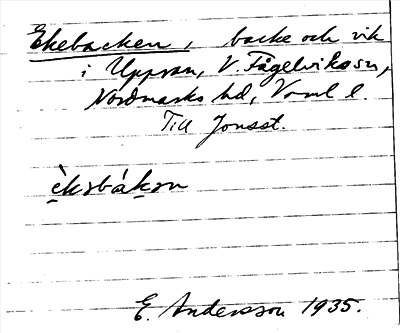 Ekebacken, backe och vik
i Uppsan, V. Fågelviks sn,
Nordmarks hd, Vrml l.
Till Jonsst.
èksbákən
E. Andersson 1935.